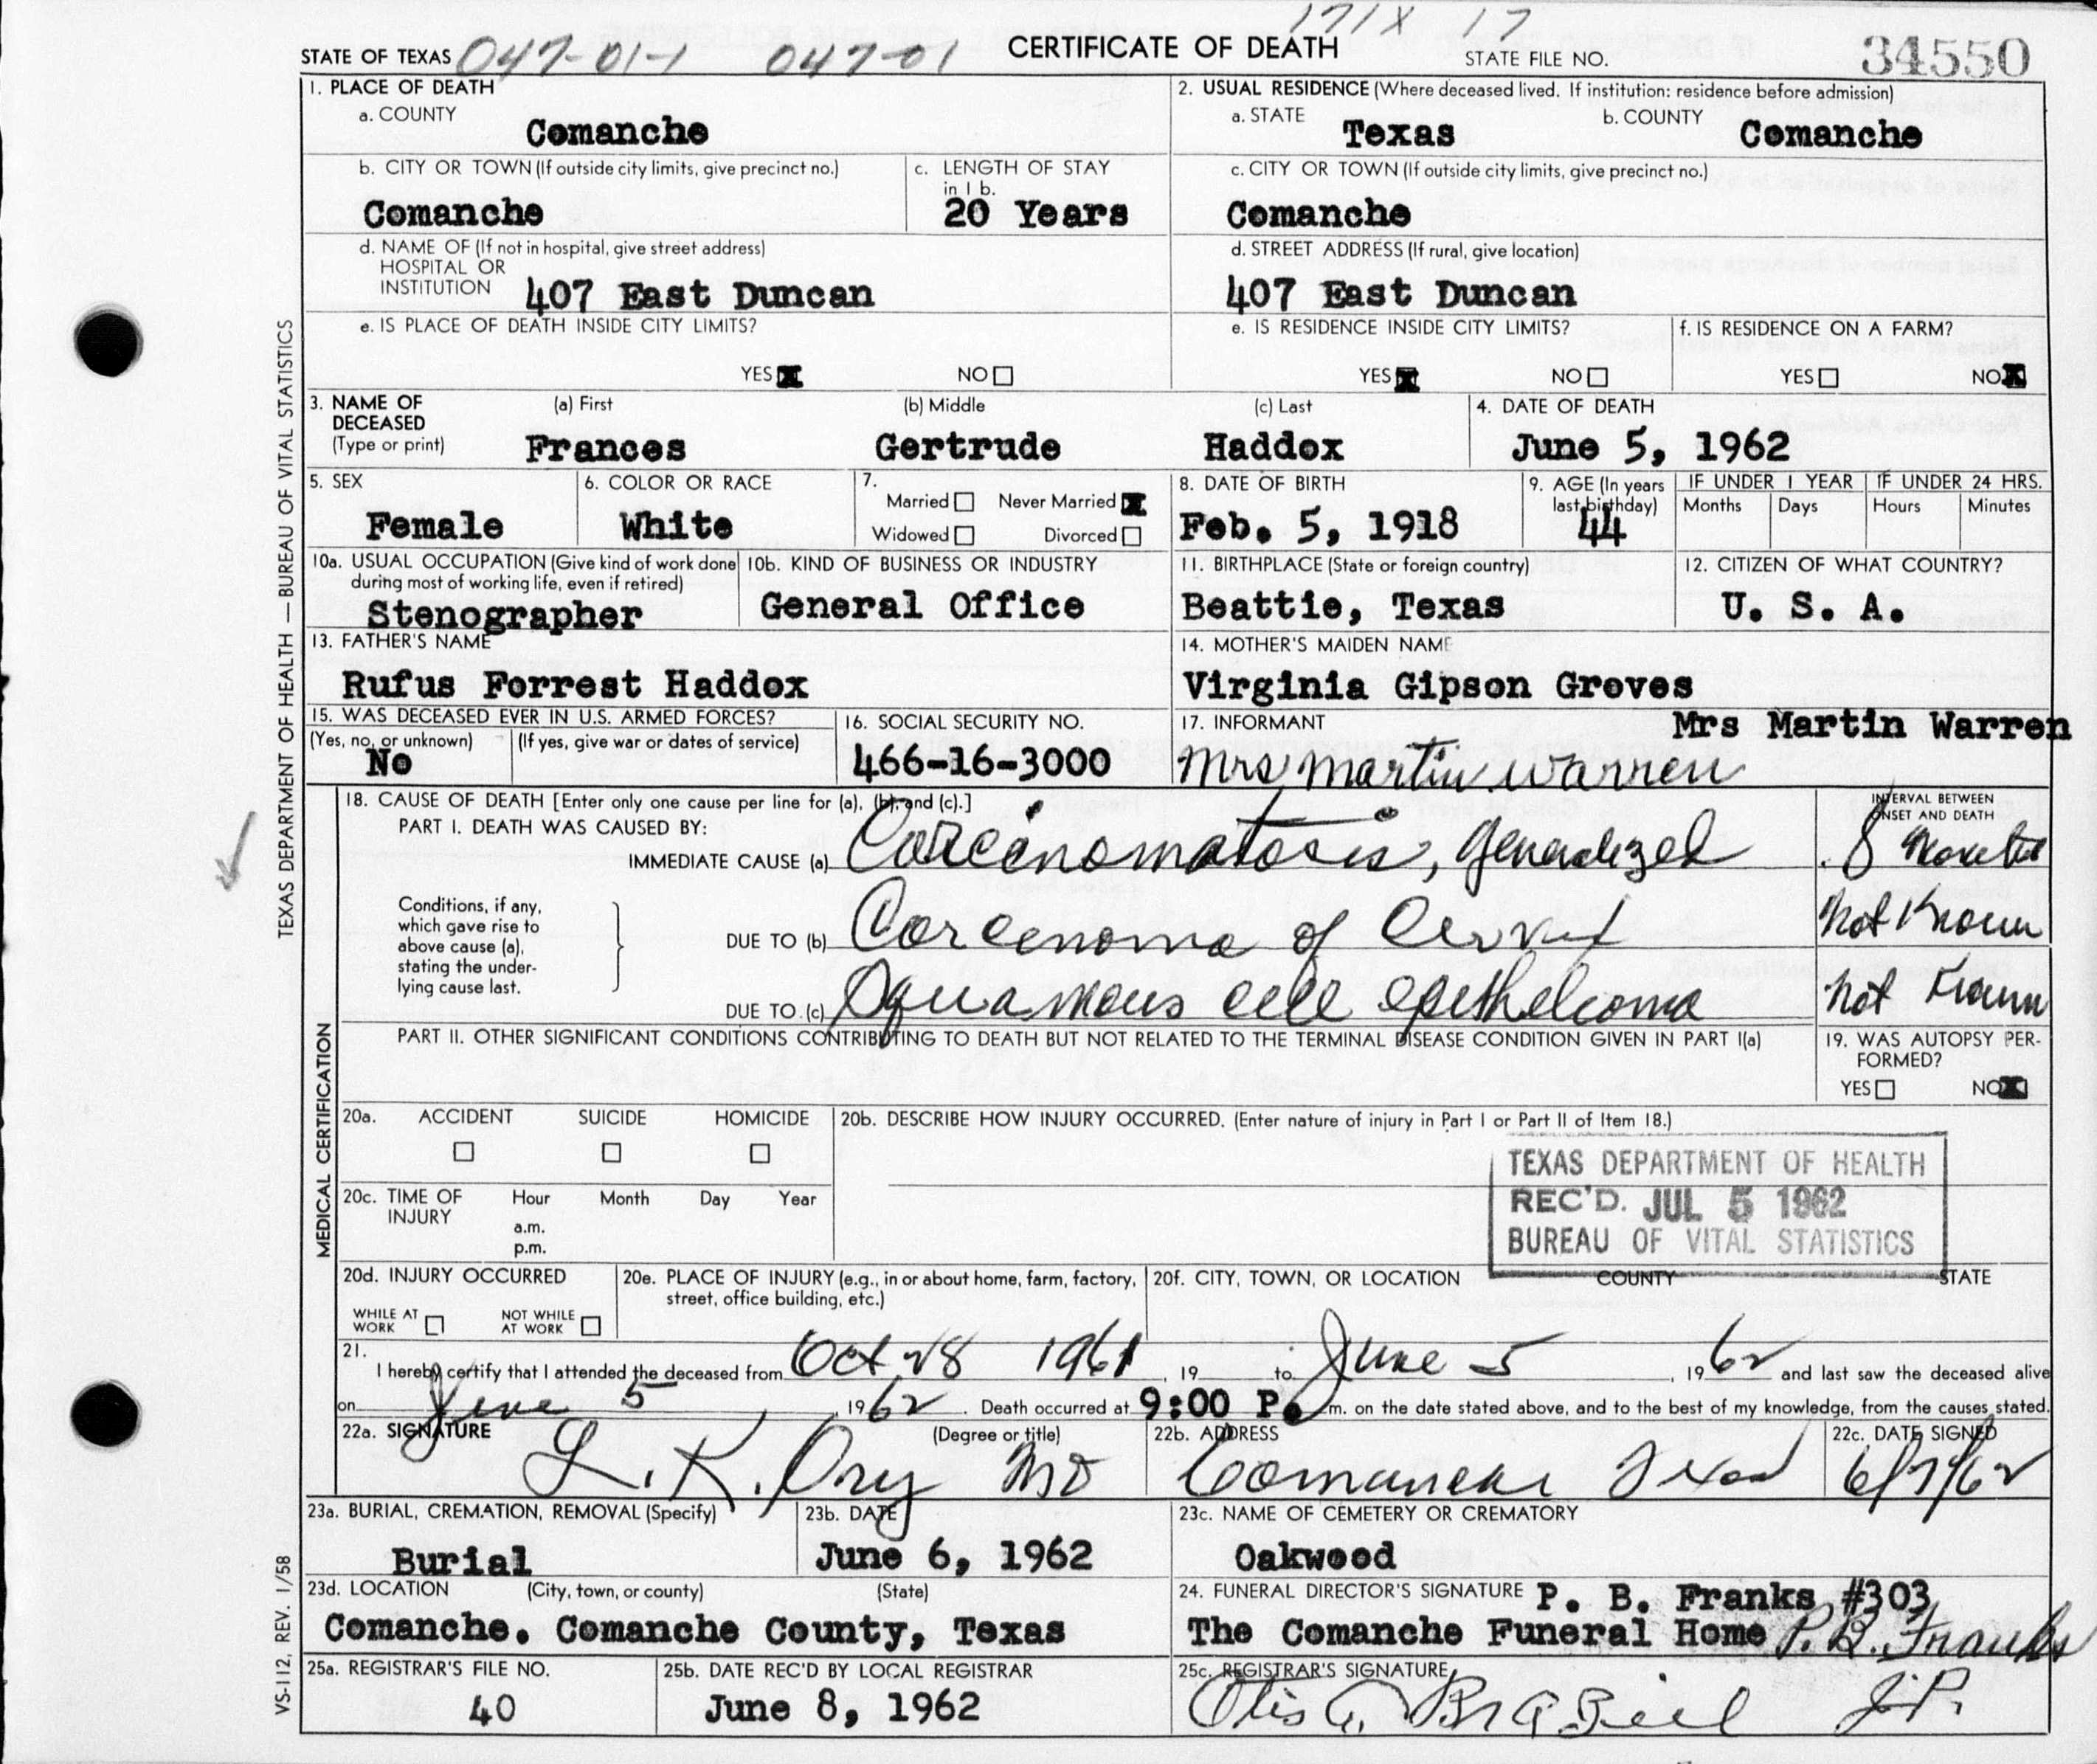 171X 17
STATE OF TEXAS 047-01-1 047-01 CERTIFICATE OF DEATH STATE FILE NO. 34550
1. PLACE OF DEATH
a. COUNTY
Comanche
2. USUAL RESIDENCE (Where deceased lived. If institution: residence before admission)
a. STATE Texas b. COUNTY Comanche
b. CITY OR TOWN (If outside city limits, give precinct no.)
Comanche
c. LENGTH OF STAY
in 1 b.
20 Years
c. CITY OR TOWN (If outside city limits, give precinct no.)
Comanche
d. NAME OF (If not in hospital, give street address)
HOSPITAL OR
INSTITUTION 407 East Duncan
d. STREET ADDRESS (If rural, give location)
407 East Duncan
e. IS PLACE OF DEATH INSIDE CITY LIMITS?
YES X NO
e. IS RESIDENCE INSIDE CITY LIMITS?
YES X NO
f. IS RESIDENCE ON A FARM?
YES NO X
3. NAME OF
DECEASED
(Type or print)
(a) First (b) Middle (c) Last
Frances Gertrude Haddox
4. DATE OF DEATH
June 5, 1962
5. SEX
Female
6. COLOR OR RACE
White
7.
Married Never Married X
Widowed Divorced
8. DATE OF BIRTH
Feb. 5, 1918
9. AGE (In years
last birthday)
44
IF UNDER 1 YEAR
Months Days
IF UNDER 24 HRS.
Hours Minutes
10a. USUAL OCCUPATION (Give kind of work done
during most of working life, even if retired)
Stenographer
10b. KIND OF BUSINESS OR INDUSTRY
General Office
11. BIRTHPLACE (State or foreign country)
Beattie, Texas
12. CITIZEN OF WHAT COUNTRY?
U. S. A.
13. FATHER'S NAME
Rufus Forrest Haddox
14. MOTHER'S MAIDEN NAME
Virginia Gipson Groves
15. WAS DECEASED EVER IN U.S. ARMED FORCES?
(Yes, no, or unknown) (If yes, give war or dates of service)
No
16. SOCIAL SECURITY NO.
466-16-3000
17. INFORMANT Mrs Martin Warren
Mrs Martin Warren
TEXAS DEPARTMENT OF HEALTH — BUREAU OF VITAL STATISTICS
MEDICAL CERTIFICATION
18. CAUSE OF DEATH [Enter only one cause per line for (a), (b), and (c).]
PART I. DEATH WAS CAUSED BY:
IMMEDIATE CAUSE (a) Carcinomatosis, generalized
INTERVAL BETWEEN
ONSET AND DEATH
8 months
Conditions, if any,
which gave rise to
above cause (a),
stating the under-
lying cause last.
DUE TO (b) Carcenoma of Cervix
Not Known
DUE TO (c) Squamous cell epithelioma
Not Known
PART II. OTHER SIGNIFICANT CONDITIONS CONTRIBUTING TO DEATH BUT NOT RELATED TO THE TERMINAL DISEASE CONDITION GIVEN IN PART I(a)
19. WAS AUTOPSY PER-
FORMED?
YES NO X
20a. ACCIDENT SUICIDE HOMICIDE
20b. DESCRIBE HOW INJURY OCCURRED. (Enter nature of injury in Part I or Part II of Item 18.)
20c. TIME OF
INJURY
Hour Month Day Year
a.m.
p.m.
TEXAS DEPARTMENT OF HEALTH
REC'D. JUL 5 1962
BUREAU OF VITAL STATISTICS
20d. INJURY OCCURRED
WHILE AT
WORK
NOT WHILE
AT WORK
20e. PLACE OF INJURY (e.g., in or about home, farm, factory,
street, office building, etc.)
20f. CITY, TOWN, OR LOCATION COUNTY STATE
21.
I hereby certify that I attended the deceased from Oct 28 1961, 19 to June 5, 1962 and last saw the deceased alive
on June 5, 1962. Death occurred at 9:00 P. m. on the date stated above, and to the best of my knowledge, from the causes stated.
22a. SIGNATURE (Degree or title)
L. K. Ory MD
22b. ADDRESS
Comanche Texas
22c. DATE SIGNED
6/7/62
23a. BURIAL, CREMATION, REMOVAL (Specify)
Burial
23b. DATE
June 6, 1962
23c. NAME OF CEMETERY OR CREMATORY
Oakwood
23d. LOCATION (City, town, or county) (State)
Comanche. Comanche County, Texas
24. FUNERAL DIRECTOR'S SIGNATURE P. B. Franks #303
The Comanche Funeral Home P. B. Franks
25a. REGISTRAR'S FILE NO.
40
25b. DATE REC'D BY LOCAL REGISTRAR
June 8, 1962
25c. REGISTRAR'S SIGNATURE
Otis A. Braziel J.P.
VS-112, REV. 1/58